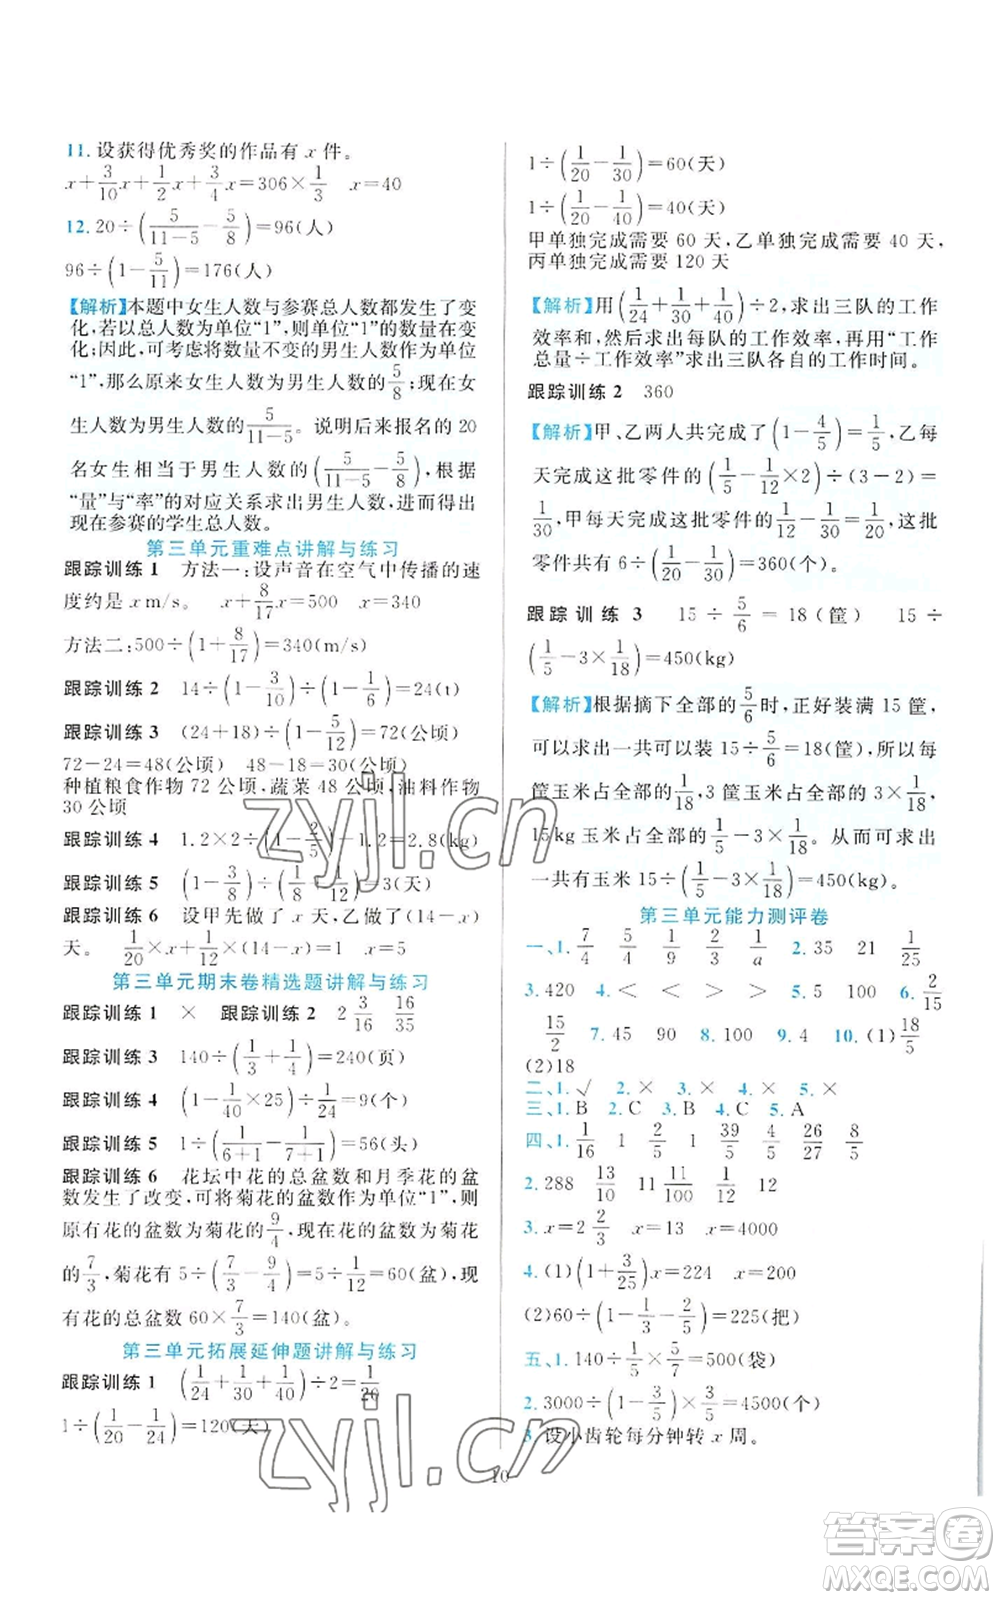 11. 设获得优秀奖的作品有 x 件。
x+3/10x+1/2x+3/4x=306×1/3　x=40
12. 20÷(5/(11-5)-5/8)=96(人)
96÷(1-5/11)=176(人)
【解析】本题中女生人数与参赛总人数都发生了变
化,若以总人数为单位“1”,则单位“1”的数量在变
化;因此,可考虑将数量不变的男生人数作为单位
“1”,那么原来女生人数为男生人数的5/8;现在女
生人数为男生人数的5/(11-5)。说明后来报名的 20
名女生相当于男生人数的(5/(11-5)-5/8),根据
“量”与“率”的对应关系求出男生人数,进而得出
现在参赛的学生总人数。
第三单元重难点讲解与练习
跟踪训练 1　方法一:设声音在空气中传播的速
度约是 x m/s。　x+8/17x=500　x=340
方法二:500÷(1+8/17)=340(m/s)
跟踪训练 2　14÷(1-3/10)÷(1-1/6)=24(t)
跟踪训练 3　(24+18)÷(1-5/12)=72(公顷)
72-24=48(公顷)　48-18=30(公顷)
种植粮食作物 72 公顷,蔬菜 48 公顷,油料作物
30 公顷
跟踪训练 4　1.2×2÷(1-2/5)-1.2=2.8(kg)
跟踪训练 5　(1-1/9)÷(1/8-1/6)=3(天)
跟踪训练 6　设甲先做了 x 天,乙做了(14-x)
天。　1/20x+(14-x)=1　x=5
第三单元期末卷精选题讲解与练习
跟踪训练 1　×　跟踪训练 2　2 3/16　16/35
跟踪训练 3　140÷(1/3+1/4)=240(页)
跟踪训练 4　(1-1/40×25)÷1/24=9(个)
跟踪训练 5　1÷(1/(6+1)-1/(7+1))=56(头)
跟踪训练 6　花坛中花的总盆数和月季花的盆
数发生了改变,可将菊花的盆数作为单位“1”,则
原有花的盆数为菊花的9/4,现在花的盆数为菊花
的7/3,菊花有 5÷(7/3-9/4)=5÷1/12=60(盆),现
有花的总盆数 60×7/3=140(盆)。
第三单元拓展延伸题讲解与练习
跟踪训练 1　(1/24+1/30+1/40)÷2=1/20
1÷(1/20-1/24)=120(天)
1÷(1/20-1/30)=60(天)
1÷(1/20-1/40)=40(天)
甲单独完成需要 60 天,乙单独完成需要 40 天,
丙单独完成需要 120 天
【解析】用(1/24+1/30+1/40)÷2,求出三队的工作
效率和,然后求出每队的工作效率,再用“工作
总量÷工作效率”求出三队各自的工作时间。
跟踪训练 2　360
【解析】甲、乙两人共完成了(1-4/5)=1/5,乙每
天完成这批零件的(1/5-1/12×2)÷(3-2)=
1/30,甲每天完成这批零件的1/12-1/30=1/20,这批
零件共有 6÷(1/20-1/30)=360(个)
跟踪训练 3　15÷5/6=18(筐)　15÷
(1/5-3×1/18)=450(kg)
【解析】根据摘下全部的5/6时,正好装满 15 筐,
可以求出一共可以装 15÷5/6=18(筐),所以 3
筐玉米占全部的 3×1/18,3 筐玉米占全部的 3×1/18,
15 kg 玉米占全部的1/5-3×1/18。从而可求出
一共有玉米 15÷(1/5-3×1/18)=450(kg)。
第三单元能力测评卷
一、1. 7/4　5/4　2/9　1/a　2. 35　21　1/25
3. 420　4. <　<　>　>　5. 5　100　6. 2/15
15/2　7. 45　90　8. 100　9. 4　10. (1)18/5
(2)18
二、1. √　2. ×　3. ×　4. ×　5. ×
三、1. B　2. C　3. B　4. C　5. A
四、1. 1/16　1　2/5　4/5　26/27　8/5
2. 288　13/10　11/100　11/12　1
3. x=2 2/3　x=13　x=4000
4. (1)(1+3/25)x=224　x=200
(2)60÷(1-1/3-2/5)=225(把)
五、1. 350×2/5÷7=500(袋)
2. 3000÷(1-1/3)=4500(个)
3. 设小齿轮每分钟转 x 周。
10
zyjl.cn
zyjl.cn
答案卷
MXQE.COM